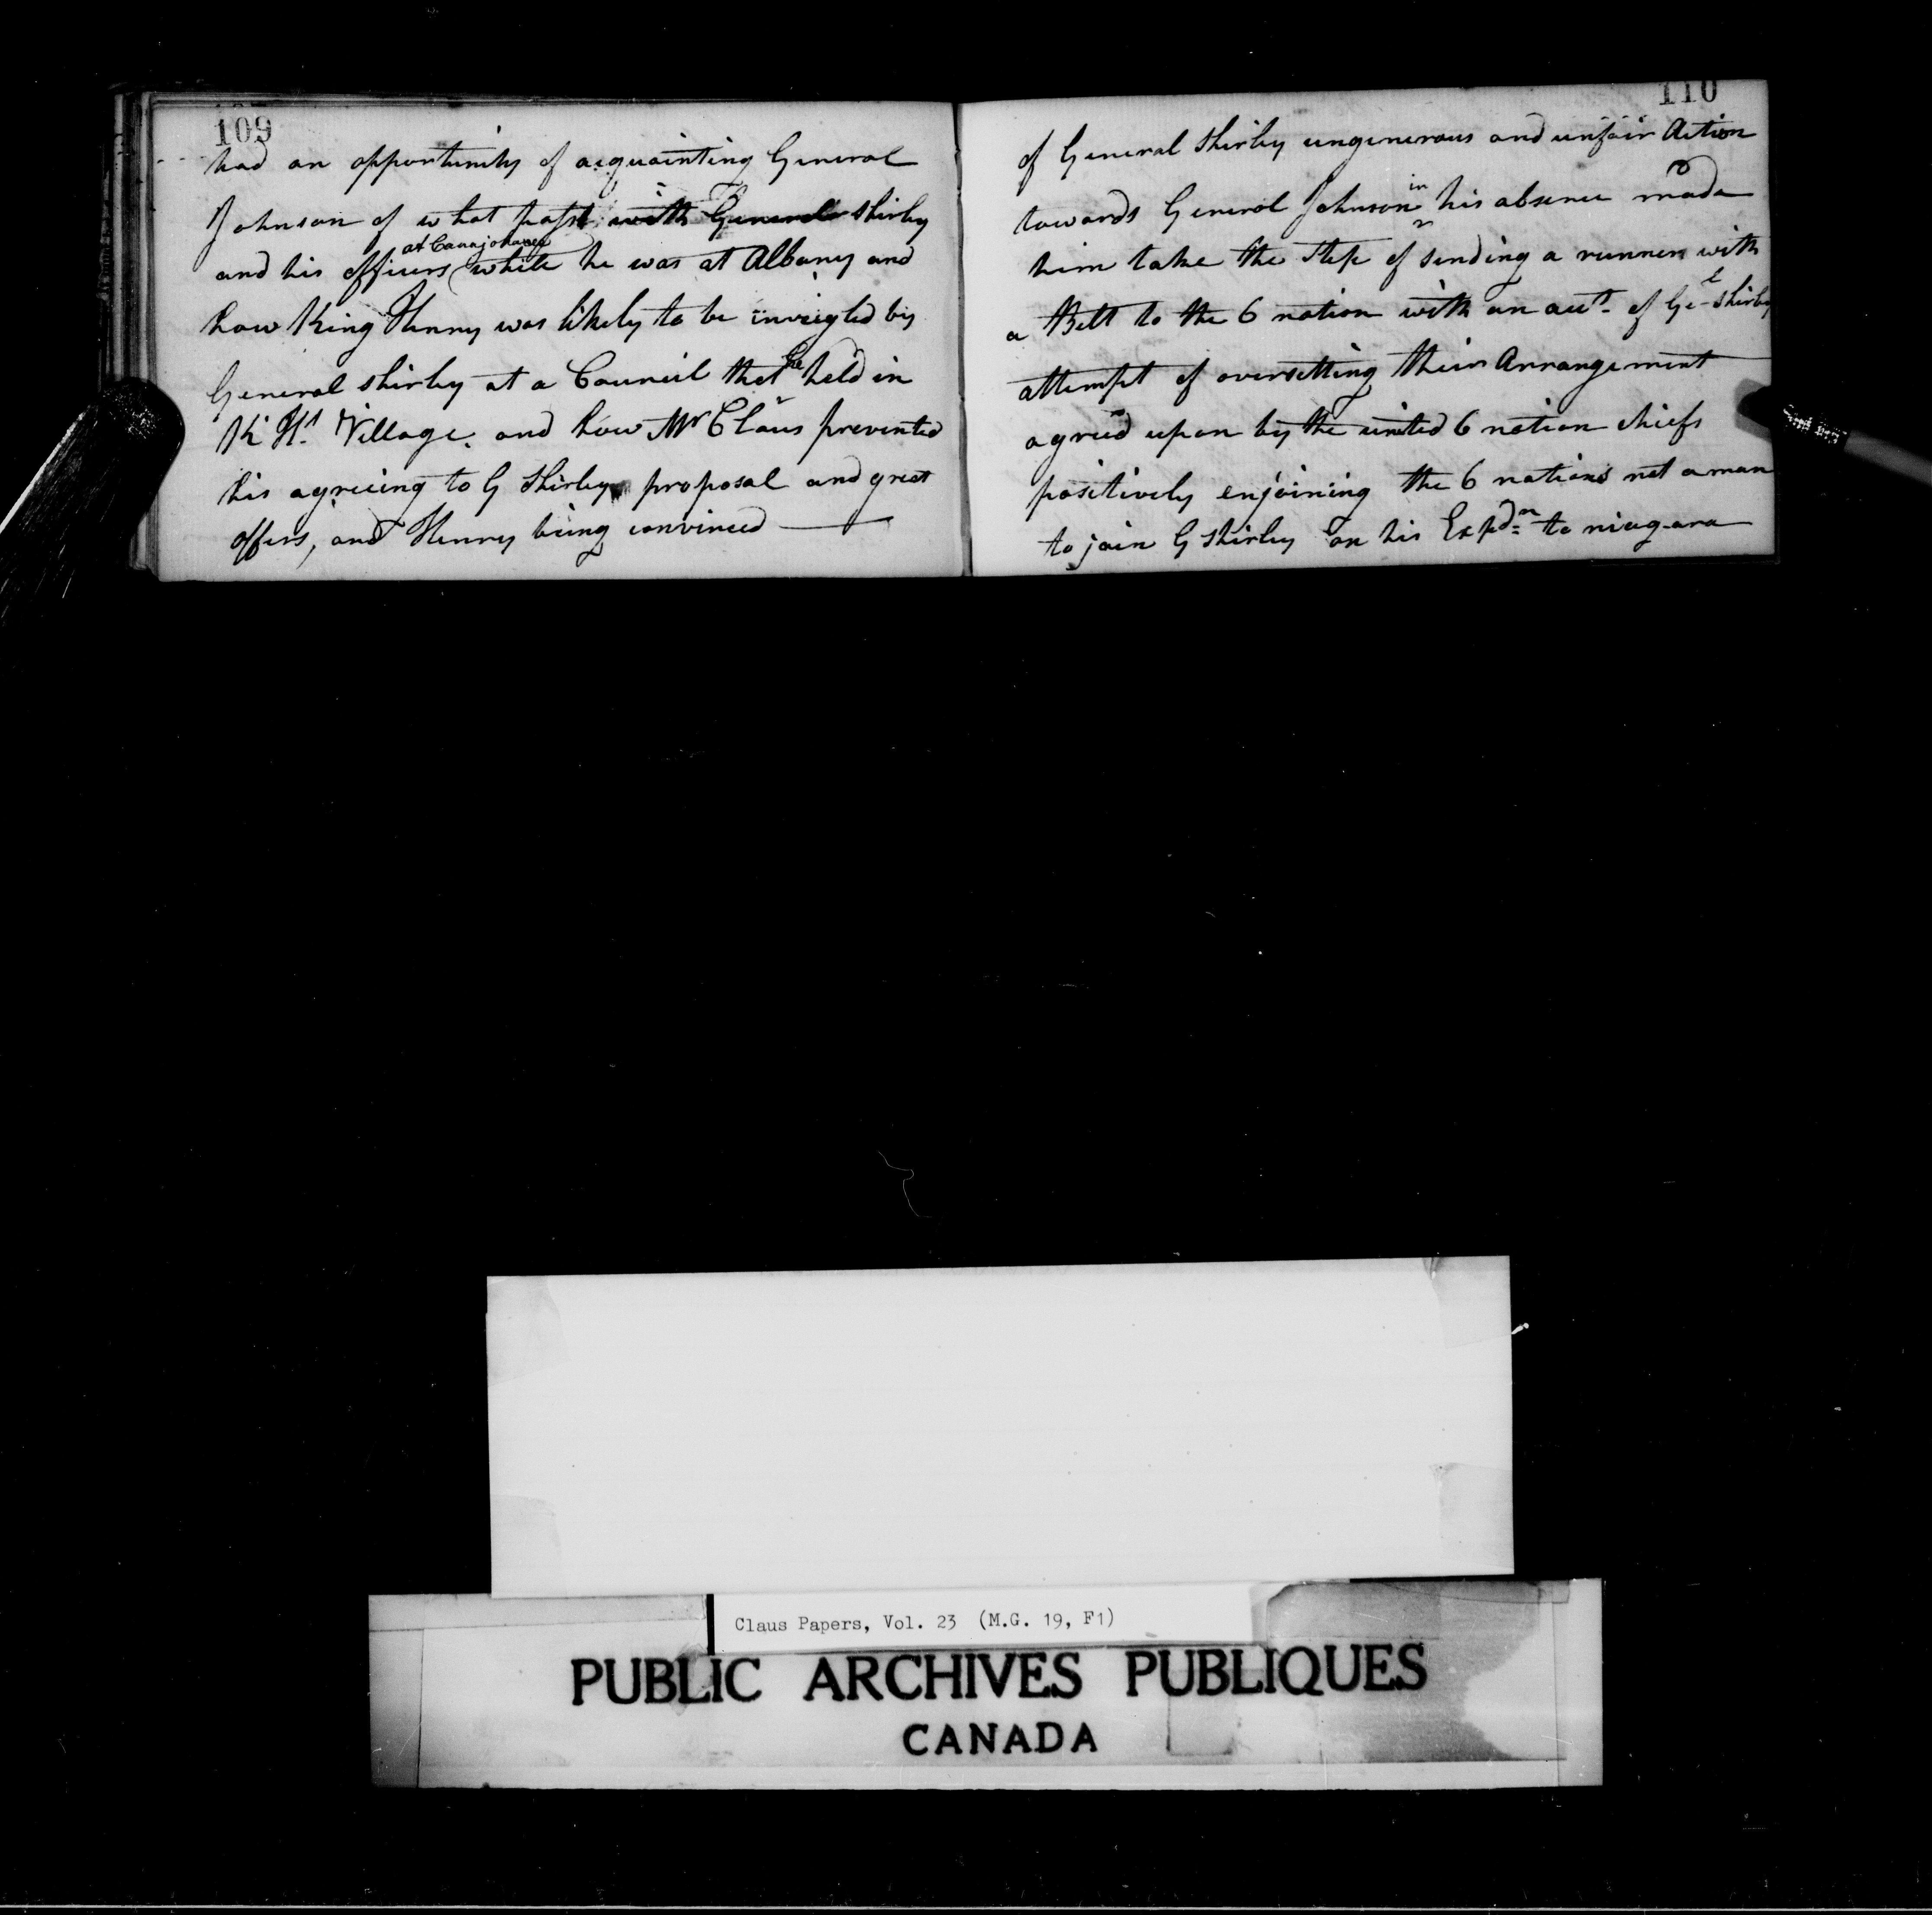 109
had an opportunity of acquainting General
Johnson of what past with General Shirley
at Canajoharee
and his officers while he was at Albany and
how King Henry was likely to be inveigled by
General Shirley at a Council that he held in
K Hs. Village. and how Mr Claus prevented
his agreeing to G Shirleys proposal and great
offers, and Henry being convinced
110
of General Shirley ungenerous and unfair Action
towards General Johnson in his absence made
him take the Step of sending a runner with
a Belt to the 6 nation with an acct. of Gel Shirley
attempt of oversetting their Arrangement
agreed upon by the united 6 nation chiefs
positively enjoining the 6 nations not a man
to join G Shirley on his Expdn= to niagara
Claus Papers, Vol. 23 (M.G. 19, F1)
PUBLIC ARCHIVES PUBLIQUES
CANADA